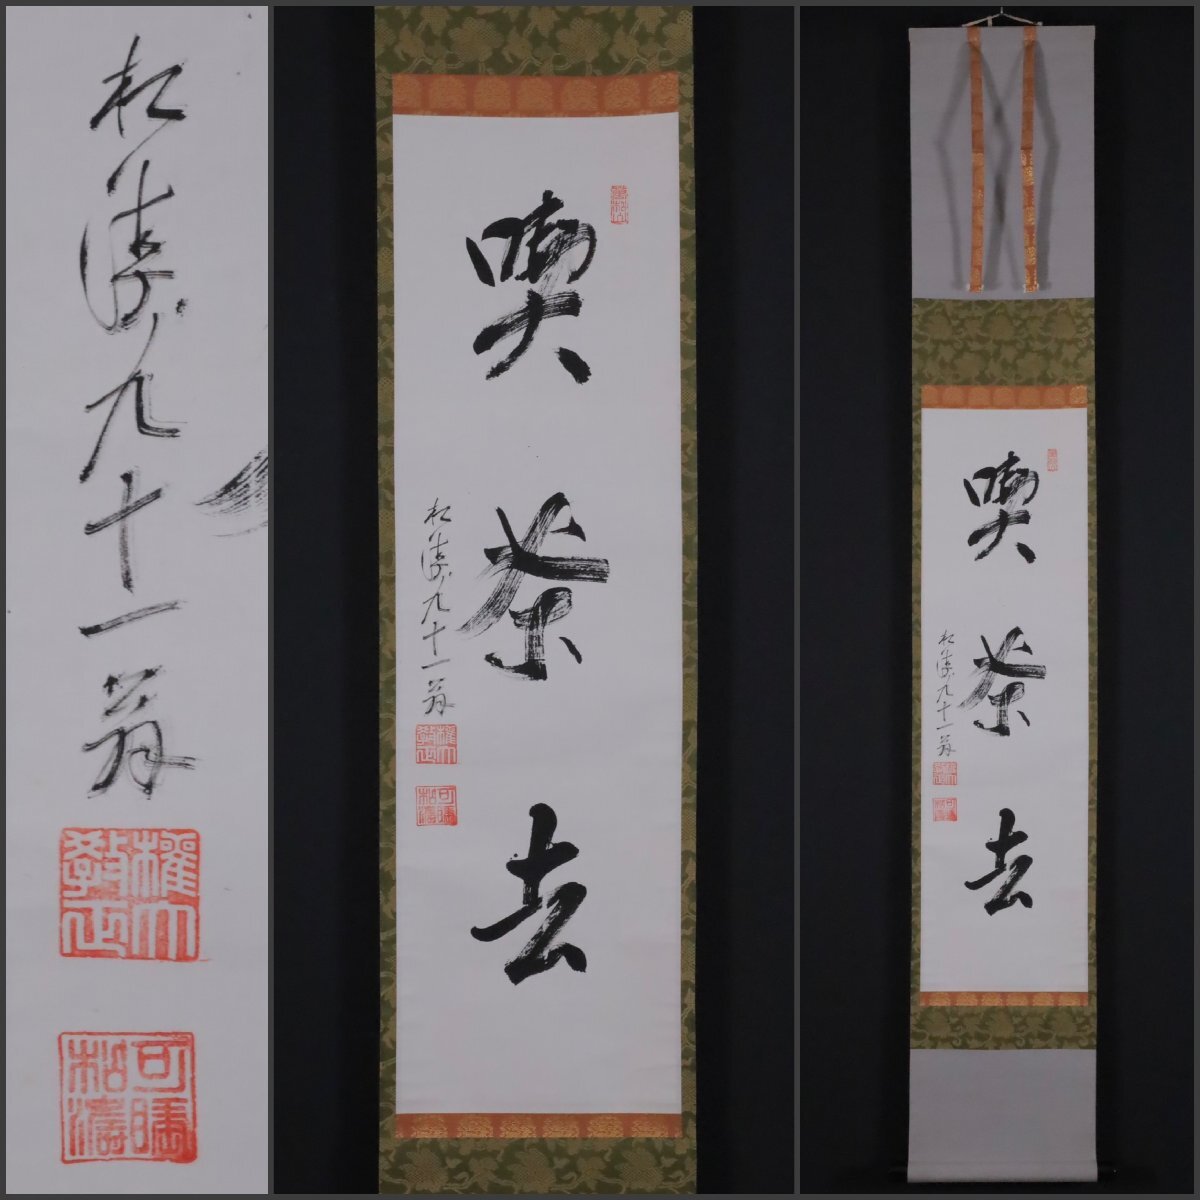 松濤九十一翁
權大教正
松濤
喫茶去
松濤九十一翁
權大教正
松濤
喫茶去
松濤九十一翁